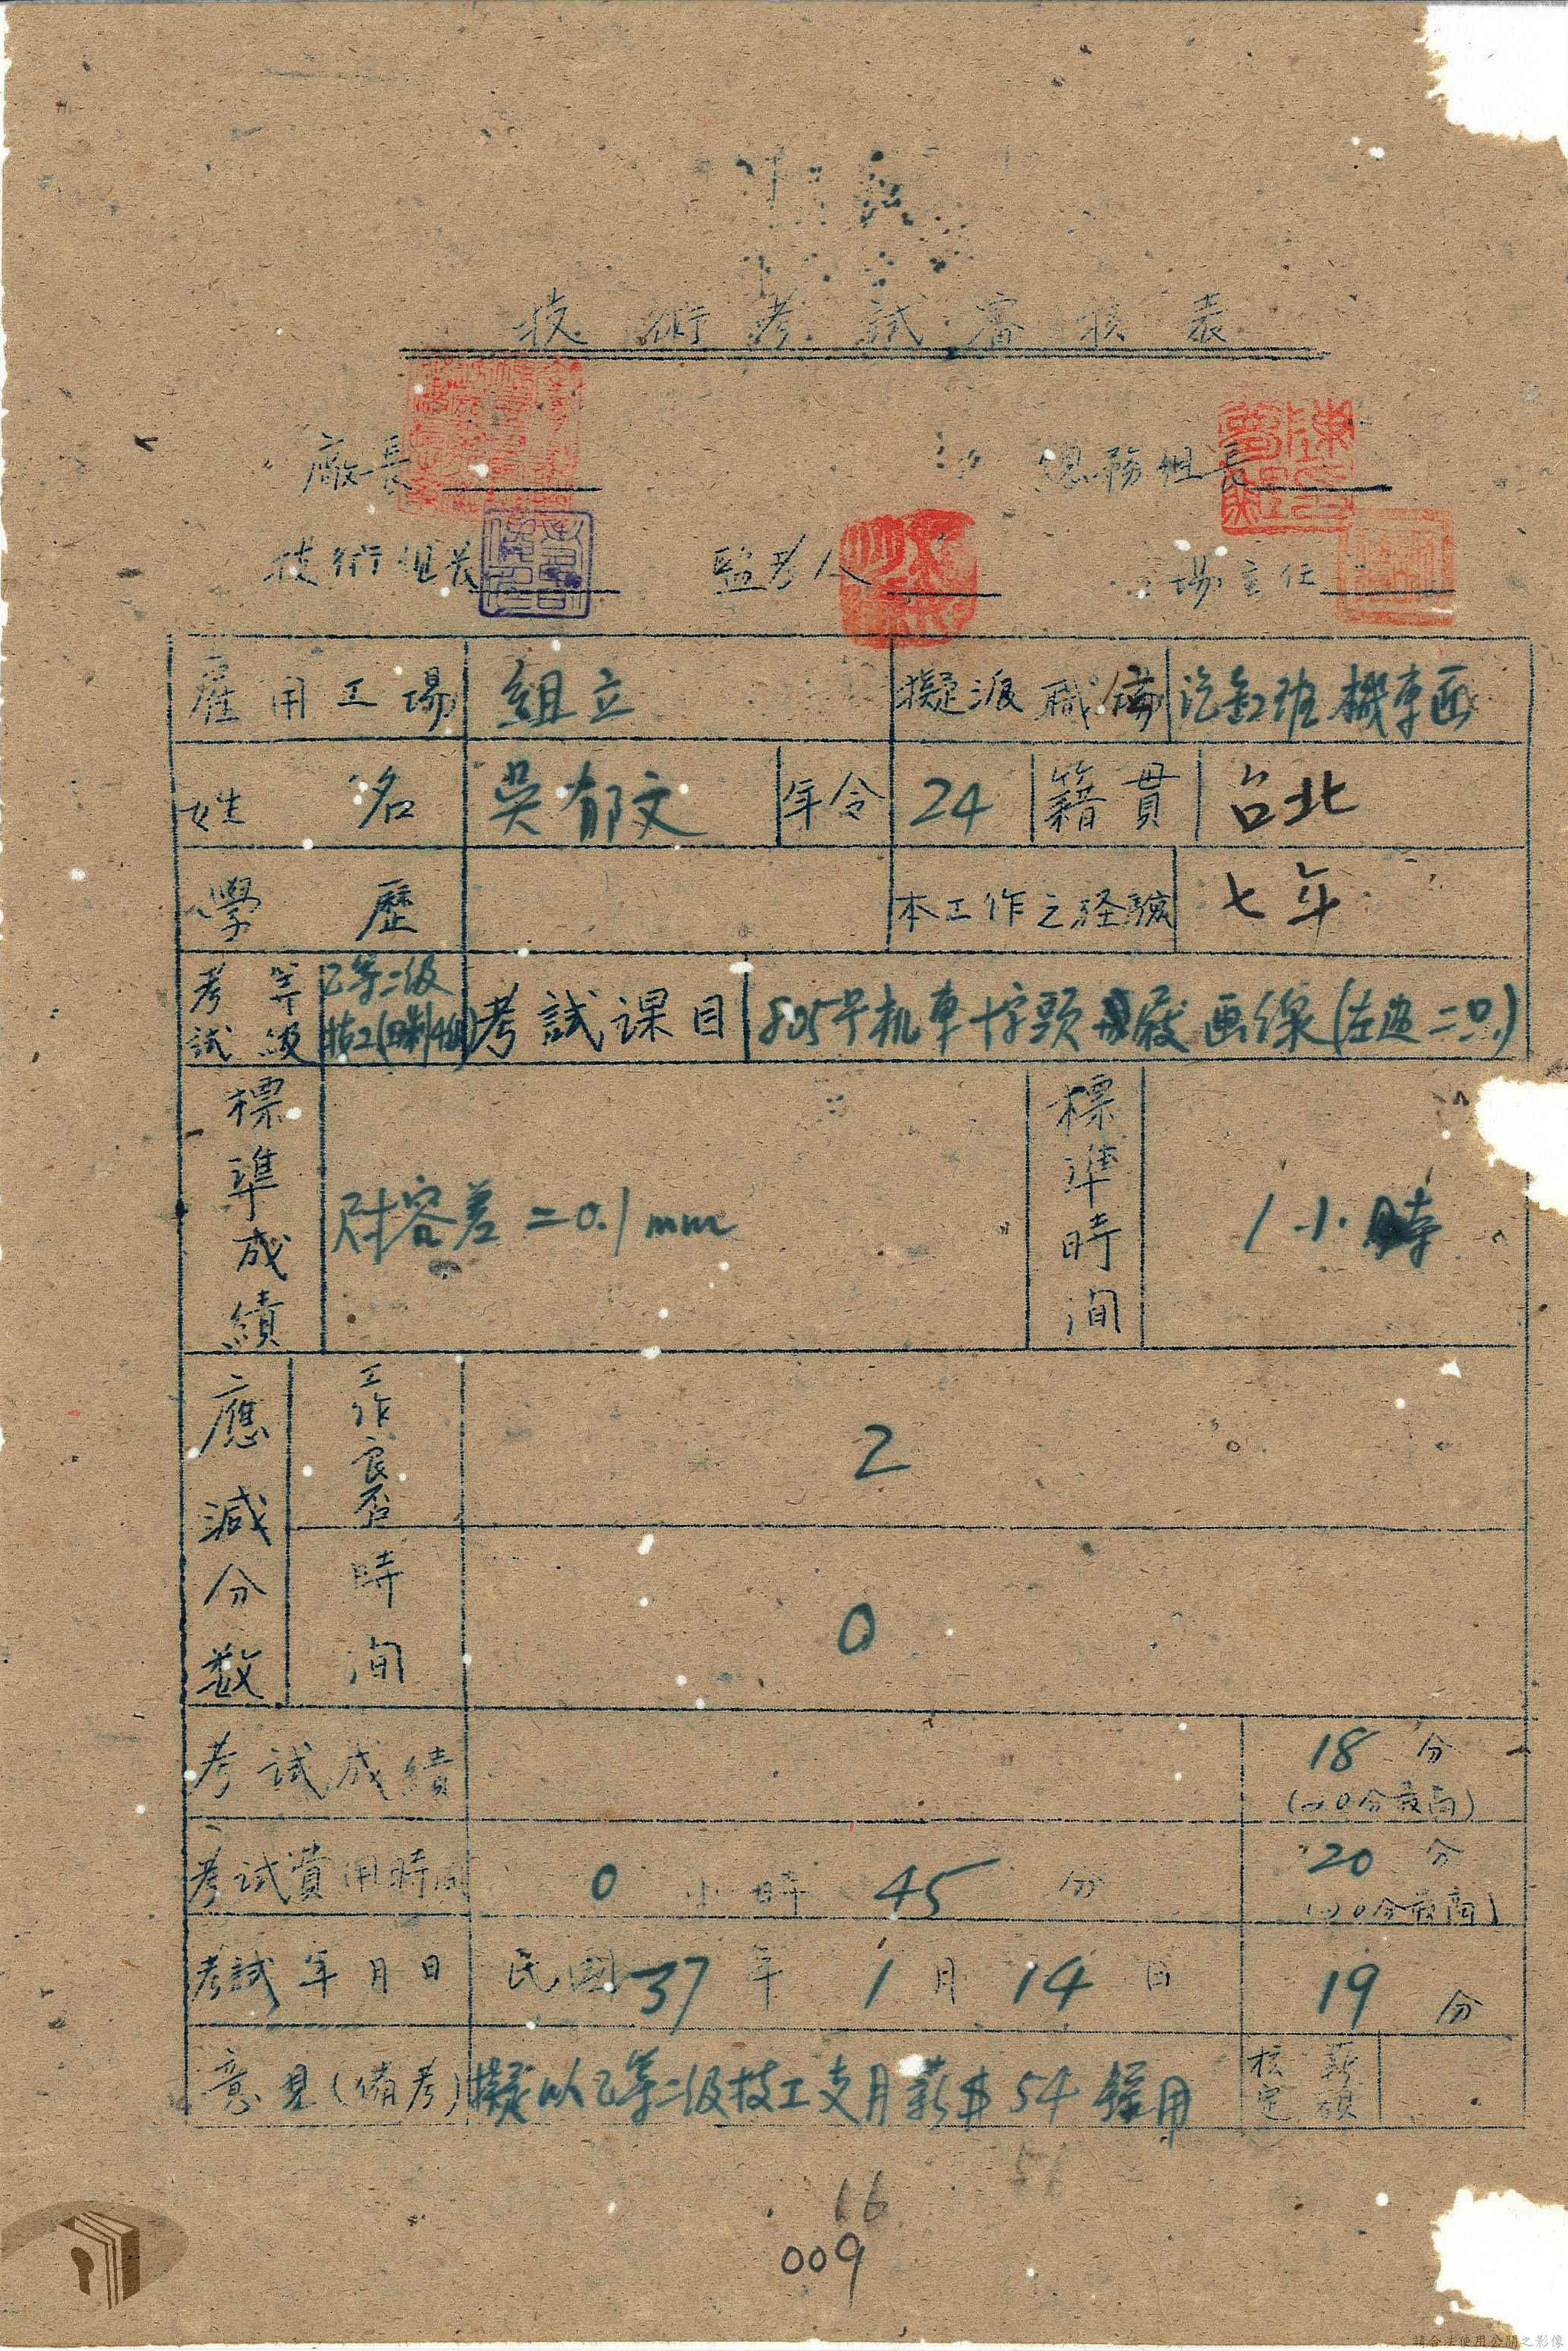 技術考試審核表
廠長 總務組長
技術組長 監考人 場主任
雇用工場 組立 擬派職備 汽缸班機車匠
姓名 吳郁文 年令 24 籍貫 台北
學歷 本工作之経験 七年
考試等級 乙等二級技工 考試課目 805号机車十字頭 画線(左边二只)
標準成績 容差=0.1mm 標準時间 1小時
應減分数 工作良否 2
時间 0
考試成績 18分
(20分最高)
考試費用時间 0小時45分 20分
(20分最高)
考試年月日 民國37年1月14日 19分
意見(備考) 擬以乙等二級技工支月薪$54録用 核定薪額
51
16
009
請合法使用公開之影像